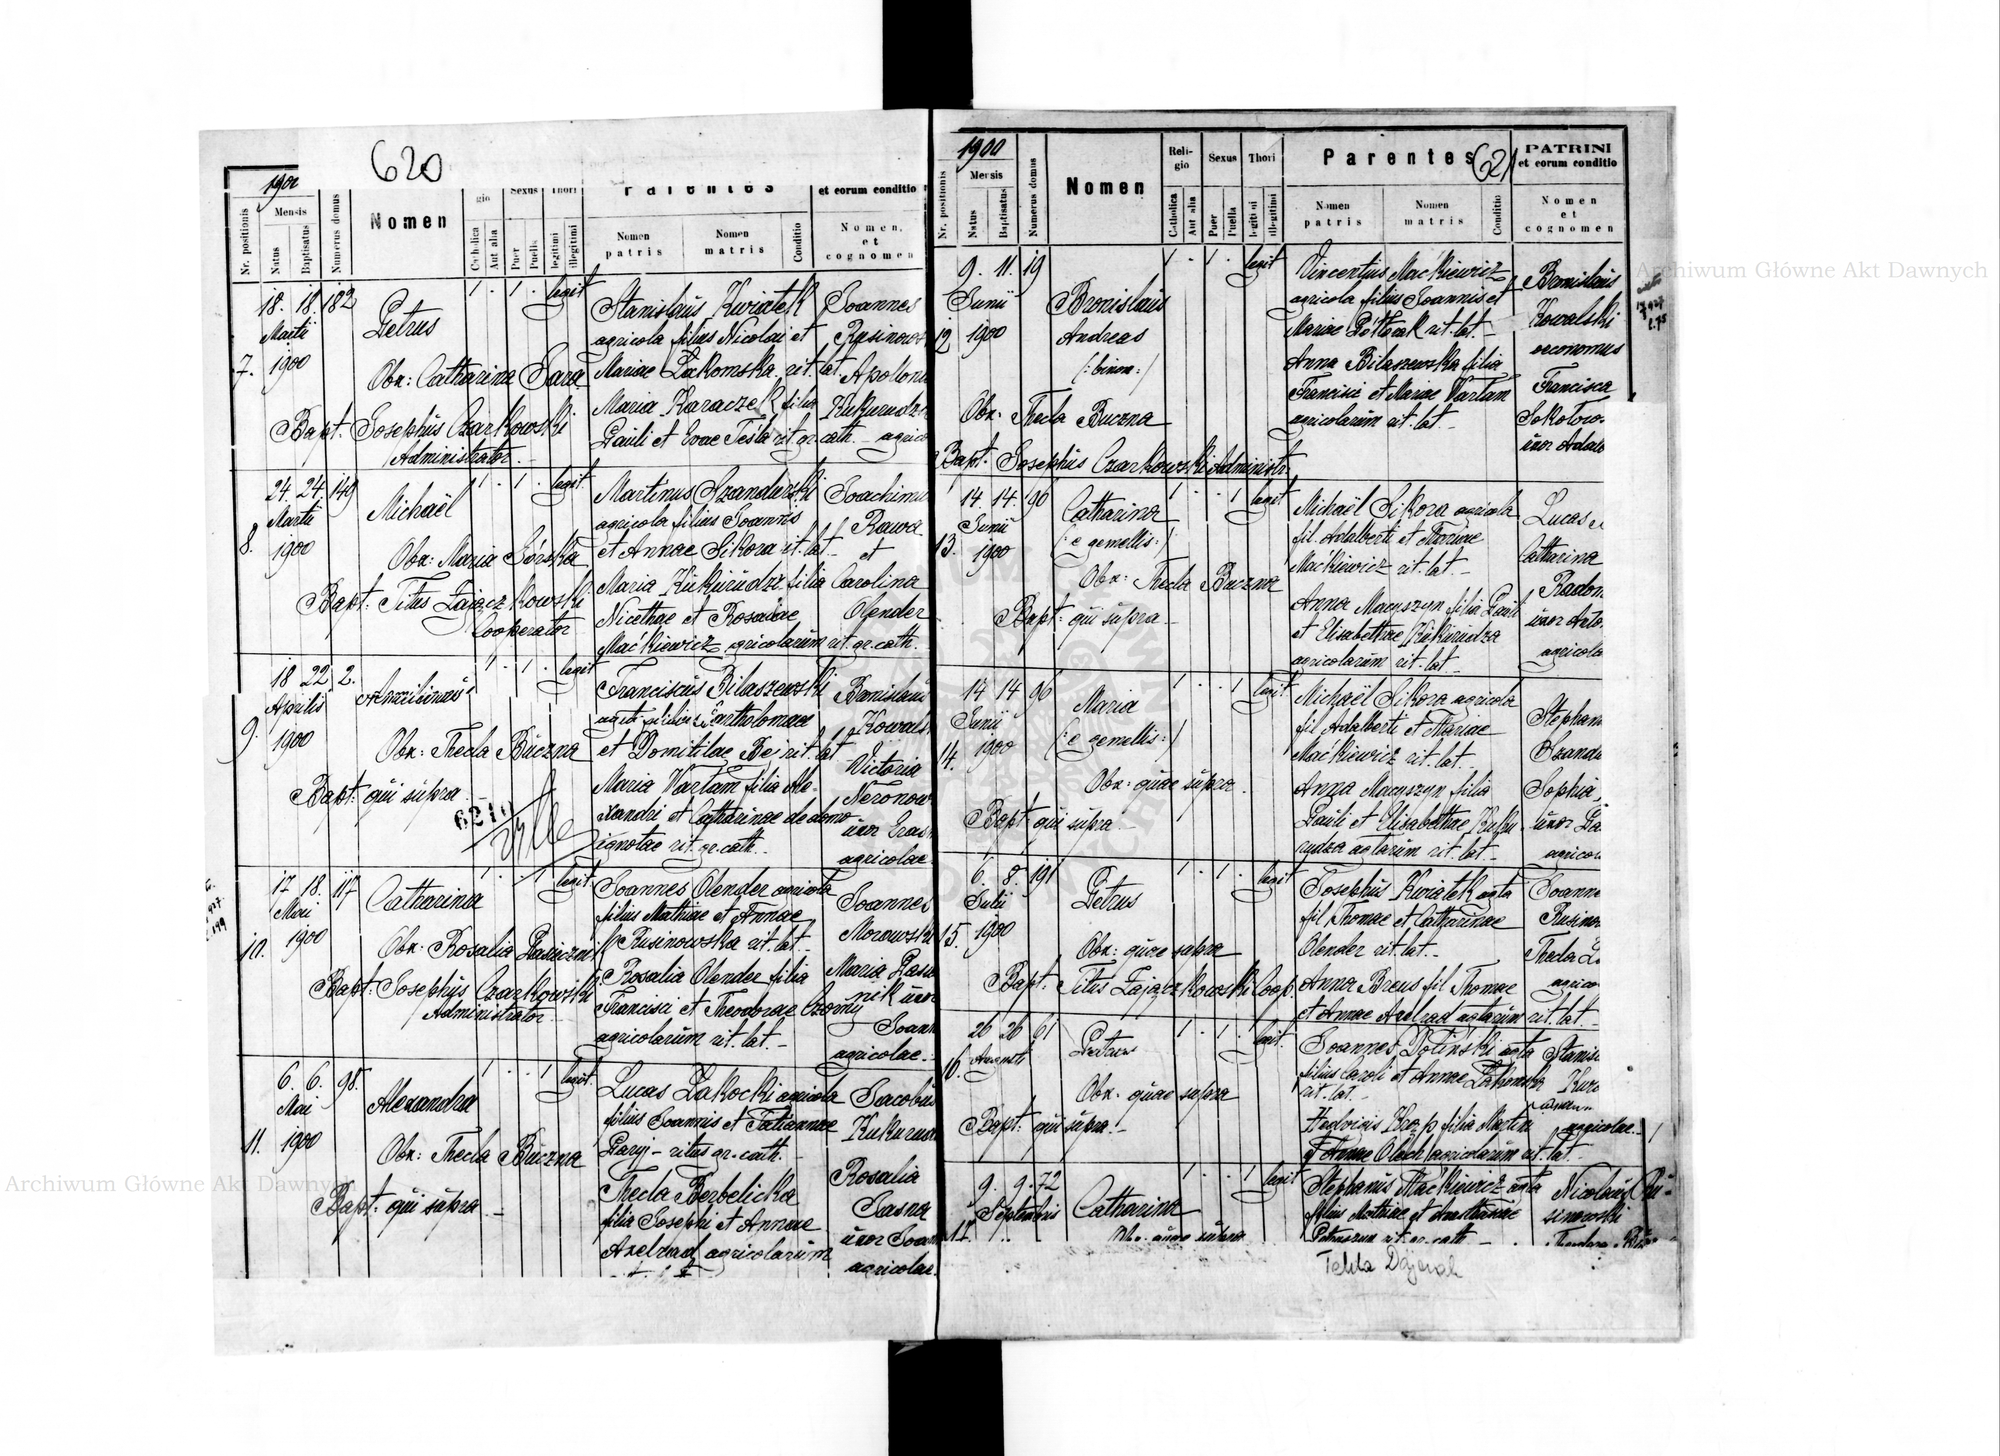 620
1900
Nr. positionis
Mensis
Natus
Baptisatus
Numerus domus
Nomen
gio
Catholica
Aut alia
Sexus
Puer
Puella
Thori
legitimi
illegitimi
Parentes
Nomen patris
Nomen matris
Conditio
et eorum conditio
Nomen et cognomen
7.
18. 18. 182
Martii
1900
Petrus
1 . 1 . legit
Obx: Catharina Sara
Bapt: Josephus Czarkowski
Administrator.
Stanislaus Kwiatek
agricola filius Nicolai et
Mariae Łakomska rit. lat.
Maria Karaczek filia
Pauli et Evae Tesla rit. gr. cath.
Joannes
Rusinows
Apoloni
Kukurudz
agrico
8.
24. 24. 149
Martii
1900
Michaël
1 . 1 . legit.
Obx: Maria Górska
Bapt: Titus Zajączkowski
Cooperator
Martinus Szandurski
agricola filius Joannis
et Annae Sikora rit. lat.
Maria Kukurudza filia
Nicethae et Rosaliae
Maćkiewicz agricolarum rit. gr. cath.
Joachimu
Rawa
et
Carolina
Olender
9.
18 22 2.
Aprilis
1900
1 . 1 . legit
Obx: Thecla Buczna
Bapt: qui supra
6210
Franciscus Bilaszewski
agric. filius Bartholomaei
et Domitilae Bej rit. lat
Maria Wartam filia Ale-
xandri et Catharinae de domo
ignotae rit. gr. cath.
Bronislaus
Kowals
Victoria
Neronow
uxor Eras
agricolae
10.
17 18. 117
Mai
1900
Catharina
1 . . 1 legit
Obx: Rosalia Pasiecznik
Bapt: Josephus Czarkowski
Administrator
Joannes Olender agricola
filius Mathiae et Annae
Rusinowska rit. lat.
Rosalia Olender filia
Francisci et Theodorae Czorny
agricolarum rit. lat.
Joannes
Morawski
Maria Pasie
nik uxor
Joann
agricolae.
11.
6. 6. 98.
Mai
1900
Alexandra
1 . . 1 legit.
Obx: Thecla Buczna
Bapt: qui supra
Lucas Zakocki agricola
filius Joannis et Tatiannae
Paryj - ritus gr. cath.
Thecla Berbelicka
filia Josephi et Annae
Axelrad agricolarum
Jacobus
Kukurud
Rosalia
Jasna
uxor Joan
agricolae.
1900
621
Nr. positionis
Mensis
Natus
Baptisatus
Numerus domus
Nomen
Religio
Catholica
Aut alia
Sexus
Puer
Puella
Thori
legitimi
illegitimi
Parentes
Nomen patris
Nomen matris
Conditio
PATRINI
et eorum conditio
Nomen et cognomen
12
9. 11. 19
Junii
1900
Bronislaus
Andreas
(: binom :)
1 . 1 . legit
Obx: Thecla Buczna
Bapt: Josephus Czarkowski Administr.
Vincentius Maćkiewicz
agricola filius Joannis et
Mariae Półtorak rit. lat.
Anna Bilaszewska filia
Francisci et Mariae Wartam
agricolarum rit. lat.
Bronislaus
Kowalski
oeconomus
Francisca
Sokołow
uxor Adal
13.
14. 14. 96
Junii
1900
Catharina
(: e gemellis :)
1 . . 1 legit
Obx: Thecla Buczna
Bapt: qui supra
Michaël Sikora agricola
fil. Adalberti et Mariae
Maćkiewicz rit. lat.
Anna Macuszyn filia Pauli
et Elisabethae Kukurudza
agricolarum rit. lat.
Lucas
Catharina
Radon
uxor Anto
agricola
14.
14 14 96
Junii
1900
Maria
(: e gemellis :)
1 . . 1 legit.
Obx: quae supra
Bapt: qui supra
Michaël Sikora agricola
fil. Adalberti et Mariae
Maćkiewicz rit. lat.
Anna Macuszyn filia
Pauli et Elisabethae Kuku
rudza agtarum rit. lat.
Stephan
Szandu
Sophia
uxor Pa
agricol
15.
6. 8. 191
Julii
1900
Petrus
1 . 1 . legit
Obx: quae supra
Bapt: Titus Zajączkowski Coop.
Josephus Kwiatek agta
fil. Thomae et Catharinae
Olender rit. lat.
Anna Breus fil. Thomae
et Annae Axelrad agtarum rit. lat.
Joanne
Rusino
Thecla
agrico
16.
26 26 61
Augusti
Petrus
1 . 1 . legit.
Obx: quae supra
Bapt: qui supra
Joannes Poliński agta
filius Caroli et Annae Łakomska
rit. lat.
Hedvigis Krzyp filia Martin
et Annae Olech agricolarum rit. lat.
Stanis
Kuro
agricolae.
17.
9. 9. 72
Septembris
Catharina
1 . . 1 legit
Obx. quae supra
Stephanus Maćkiewicz agta
filius Mathiae et Anasthasiae
rit. gr. cath
Nicolaus Ru-
sinowski
Tekla Dżjerak
Archiwum Główne Akt Dawnych
Archiwum Główne Akt Dawnych